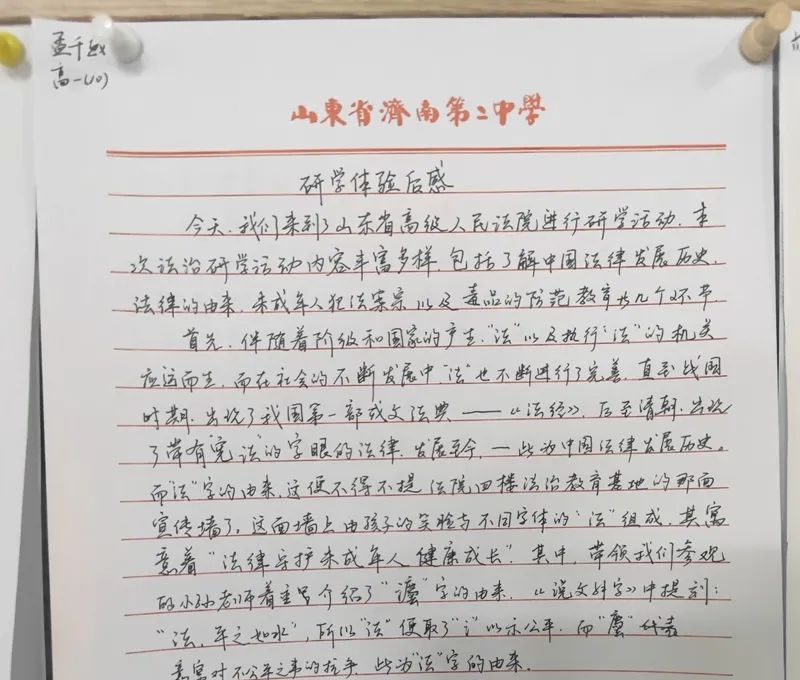 孟千
高一(10)
山東省濟南第二中學
研学体验后感
今天,我们来到了山东省高级人民法院进行研学活动.本
次法治研学活动内容丰富多样,包括了解中国法律发展历史,
法律的由来,未成年人犯法案宗以及毒品的防范教育共几个环节.
首先,伴随着阶级和国家的产生,“法”以及执行“法”的机关
应运而生,而在社会的不断发展中,“法”也不断进行了完善,直至战国
时期,出现了我国第一部成文法典——《法经》,后至清朝,出现
了带有“宪法”的字眼的法律,发展至今,—此为中国法律发展历史。
而“法”字的由来,这便不得不提法院四楼法治教育基地的那面
宣传墙了,这面墙上由孩子的笑脸与不同字体的“法”组成,其寓
意着“法律守护未成年人健康成长”.其中,带领我们参观
的小孙老师着重介绍了“灋”字的由来,《说文解字》中提到:
“法,平之如水”,所以“法”便取了“氵”以示公平.而“廌”代表
着对不公平之事的抗争,此为“法”字的由来.